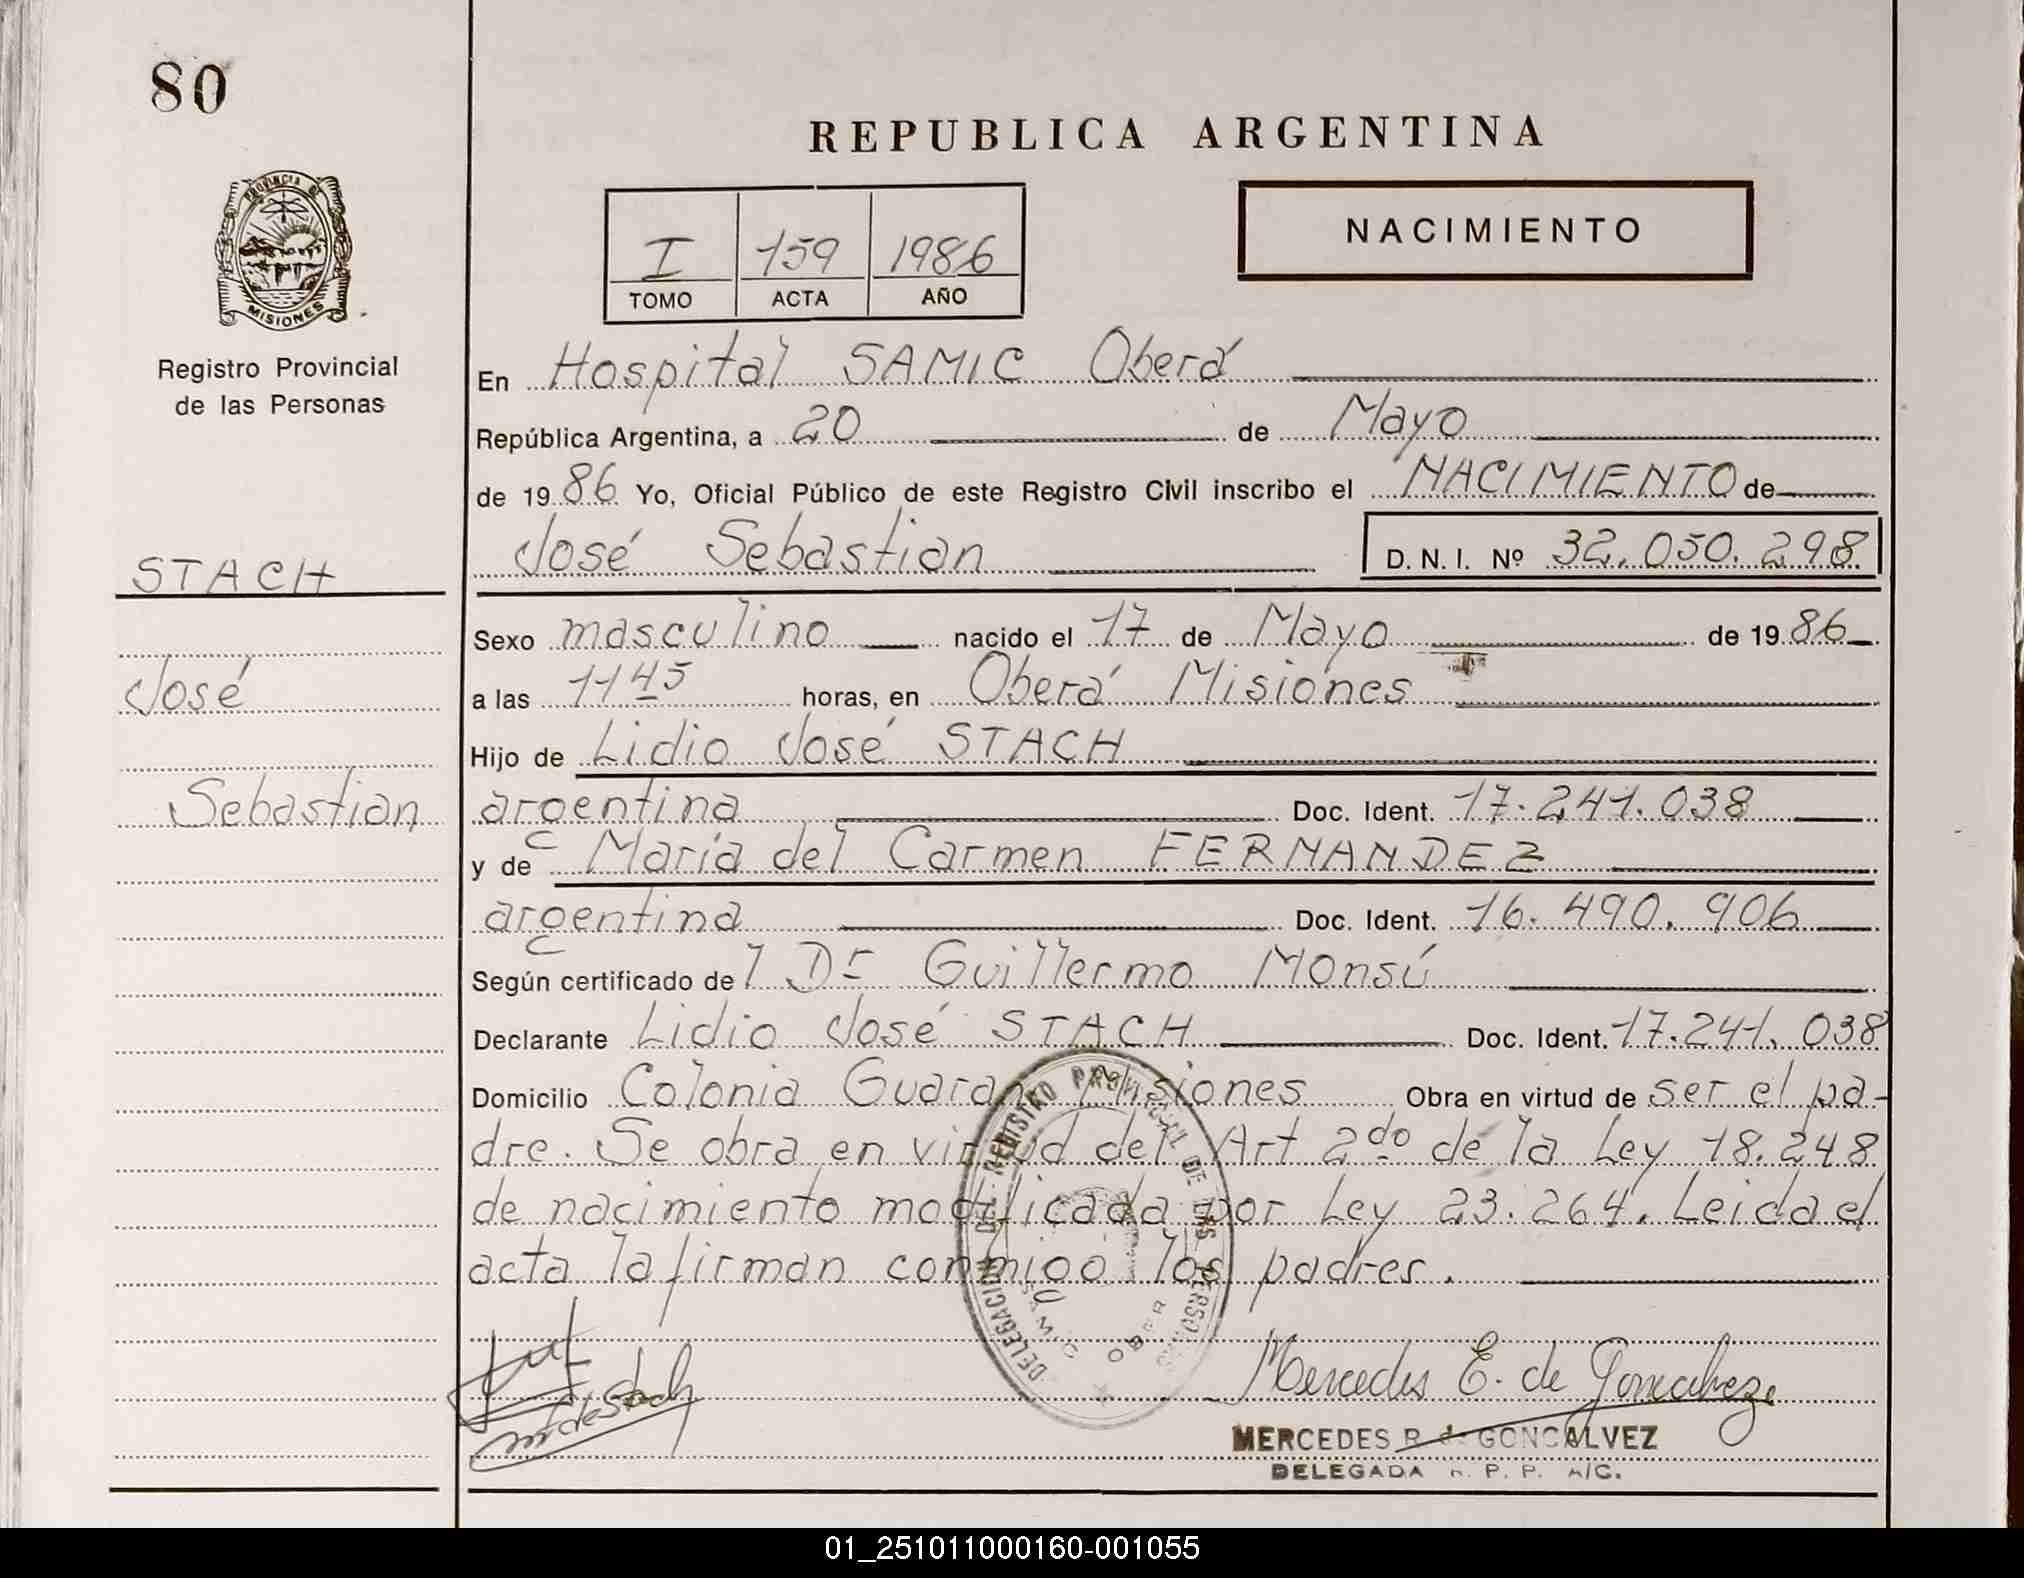 80
REPUBLICA ARGENTINA
PROVINCIA DE
MISIONES
Registro Provincial
de las Personas
I 159 1986
TOMO ACTA AÑO
NACIMIENTO
En Hospital SAMIC Oberá
República Argentina, a 20 de Mayo
de 1986 Yo, Oficial Público de este Registro Civil inscribo el NACIMIENTO de
José Sebastian D. N. I. Nº 32.050.298
STACH
José
Sebastian
Sexo masculino nacido el 17 de Mayo de 1986
a las 11 45 horas, en Oberá Misiones
Hijo de Lidio José STACH
argentina Doc. Ident. 17.241.038
y de María del Carmen FERNANDEZ
argentina Doc. Ident. 16.490.906
Según certificado del Dr Guillermo Monsú
Declarante Lidio José STACH Doc. Ident. 17.241.038
Domicilio Colonia Guarani Misiones Obra en virtud de ser el pa-
dre. Se obra en virtud del Art 2do de la Ley 18.248
de nacimiento modificada por Ley 23.264. Leida el
acta la firman conmigo los padres.
DELEGACION DEL REGISTRO PROVINCIAL DE LAS PERSONAS
SAMIC OBERA
Mercedes E. de Goncalvez
MERCEDES R. de GONCALVEZ
DELEGADA R. P. P. A/C.
01_251011000160-001055